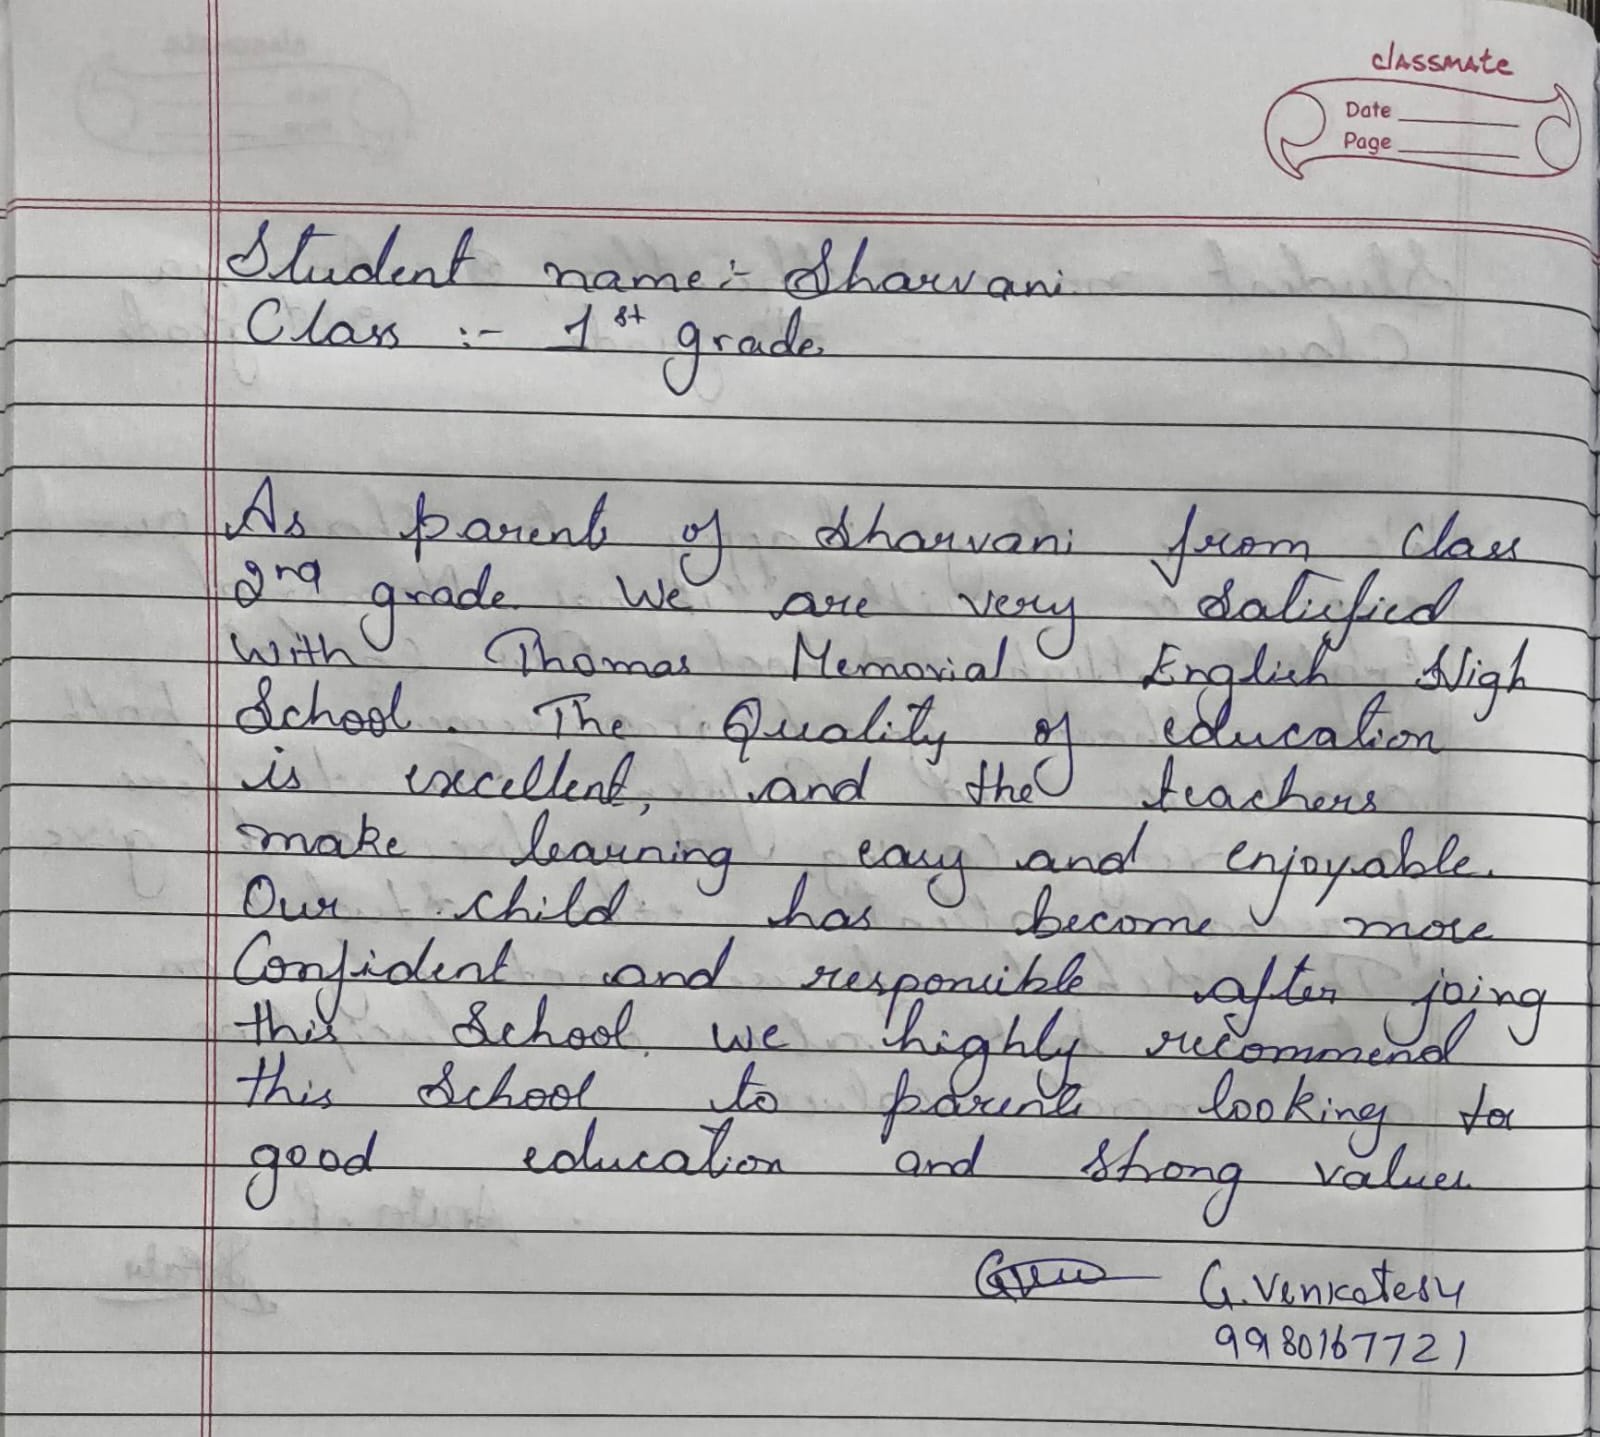 classmate
Date
Page
Student name:- Sharvani
Class :- 1st grade
As parents of Sharvani from class
2nd grade We are very Satisfied
with Thomas Memorial English High
School. The Quality of education
is excellent, and the teachers
make learning easy and enjoyable.
Our child has become more
Confident and responsible after joing
this School. we highly recommend
this School to parents looking for
good education and strong values.
G. Venkatesh
9980167721